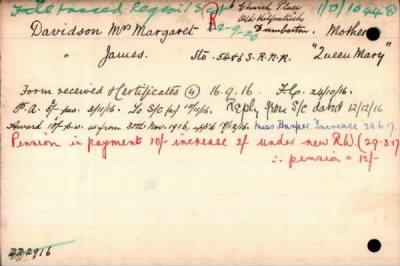 File traced Region 1 S Church Place 1/D/10448
R 22-9-25 Old Kilpatrick
Davidson Mrs Margaret Dumbarton. Mother
" James. Sto. 5486 S. R.N.R. "Queen Mary"
Form received & Certificates (4) 16.9.16. F/o. 24/10/16.
P.A. 5/- pw. 3/11/16. To S/C (a) 17/11/16. Reply from S/C dated 12/12/16.
Award 10/- p.w. as from 30th Nov. 1916, 19/12/16. Miss Harper Increase 28.6.17.
Pension in payment 10/- increase 2/- under new R.W. (29-3-17)
∴ pension = 12/-
22.2916